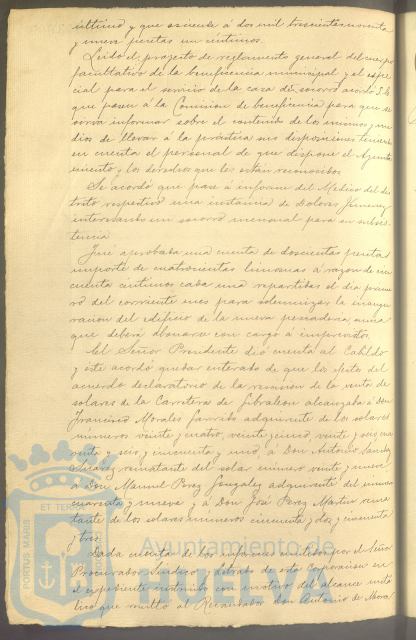 último y que asciende á dos mil trescientas noventa
y nueve pesetas un céntimos.
Leido el proyecto de reglamento general del cuerpo
facultativo de la beneficencia municipal y el espe-
cial para el servicio de la casa de socorro acordó S. E.
que pasen á la Comision de beneficencia para que se
sirva informar sobre el contenido de los mismos y me-
dios de llevar á la práctica sus disposiciones teniendo
en cuenta el personal de que dispone el Ayunta-
miento y los derechos que le estan reconocidos.
Se acordó que pase á informe del Medico del dis-
trito respectivo una instancia de Dolores Jimenez
interesando un socorro mensual para su subsis-
tencia.
Fué aprobada una cuenta de doscientas pesetas
importe de cuatrocientas limosnas á razon de cin-
cuenta céntimos cada una repartidas el dia prime-
ro del corriente mes para solemnizar la inaugu-
racion del edificio de la nueva pescaderia, suma
que deberá abonarse con cargo á imprevistos.
El Señor Presidente dió cuenta al Cabildo
y éste acordó quedar enterado de que los efectos del
acuerdo declaratorio de la rescision de la venta de
solares de la Carretera de Gibraleon alcanzaba á Don
Francisco Morales Garrido adquirente de los solares
números veinte y cuatro, veinte y cinco, veinte y seis,
y seis y cincuenta y uno, á Don Antonio
rematante del solar número veinte y nueve
á Don Manuel Perez Gonzalez adquirente del número
cuarenta y nueve y á Don José Perez Martin rema-
tante de los solares números cincuenta y dos y cincuenta
y tres.
Dada cuenta de los informes emitidos por el Señor
Procurador Síndico y letrado de esta Corporacion en
el expediente instruido con motivo del alcance
que resultó al Recaudador don Antonio de Mora
PORTUS MARIS ET TERRAE
Ayuntamiento de
HUELVA